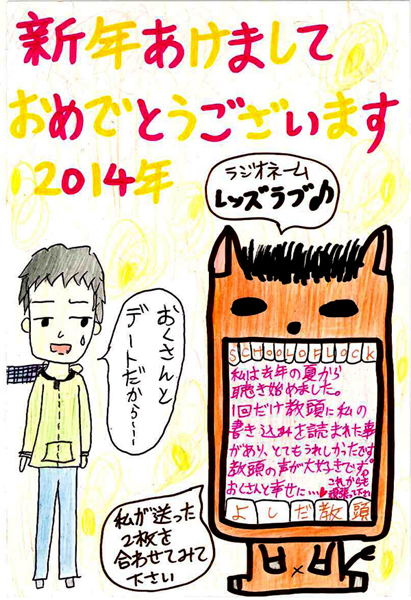 新年あけまして
おめでとうございます
2014年
ラジオネーム
レンズラブ♪
おくさんと
デートだから〜
SCHOOL OF LOCK
私は去年の夏から
聴き始めました。
1回だけ教頭に私の
書き込みを読まれた事
があり、とてもうれしかったです。
教頭の声が大好きです。
おくさんと幸せに
これからも
頑張って下さい
よしだ教頭
私が送った
2枚を
合わせてみて
下さい